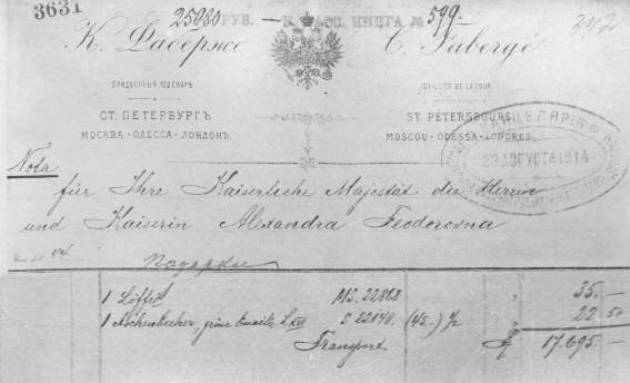 3631
25080 РУБ. № 599.-
К. Фаберже C. Fabergé
ПРИДВОРНЫЙ ЮВЕЛИРЪ JOAILLIER DE LA COUR
СТ. ПЕТЕРБУРГЪ ST. PÉTERSBOURG
МОСКВА - ОДЕССА - ЛОНДОНЪ. MOSCOU - ODESSA - LONDRES.
АВГУСТА 1914
Nota
für Ihre Kaiserliche Majestät die Herrin
und Kaiserin Alexandra Feodorovna
Подарки
1 Löffel 22868 " 35.-
1 Aschenbecher, grüne Emaile L. XVI S. 22148. " 22 50
Transport 17.695.-